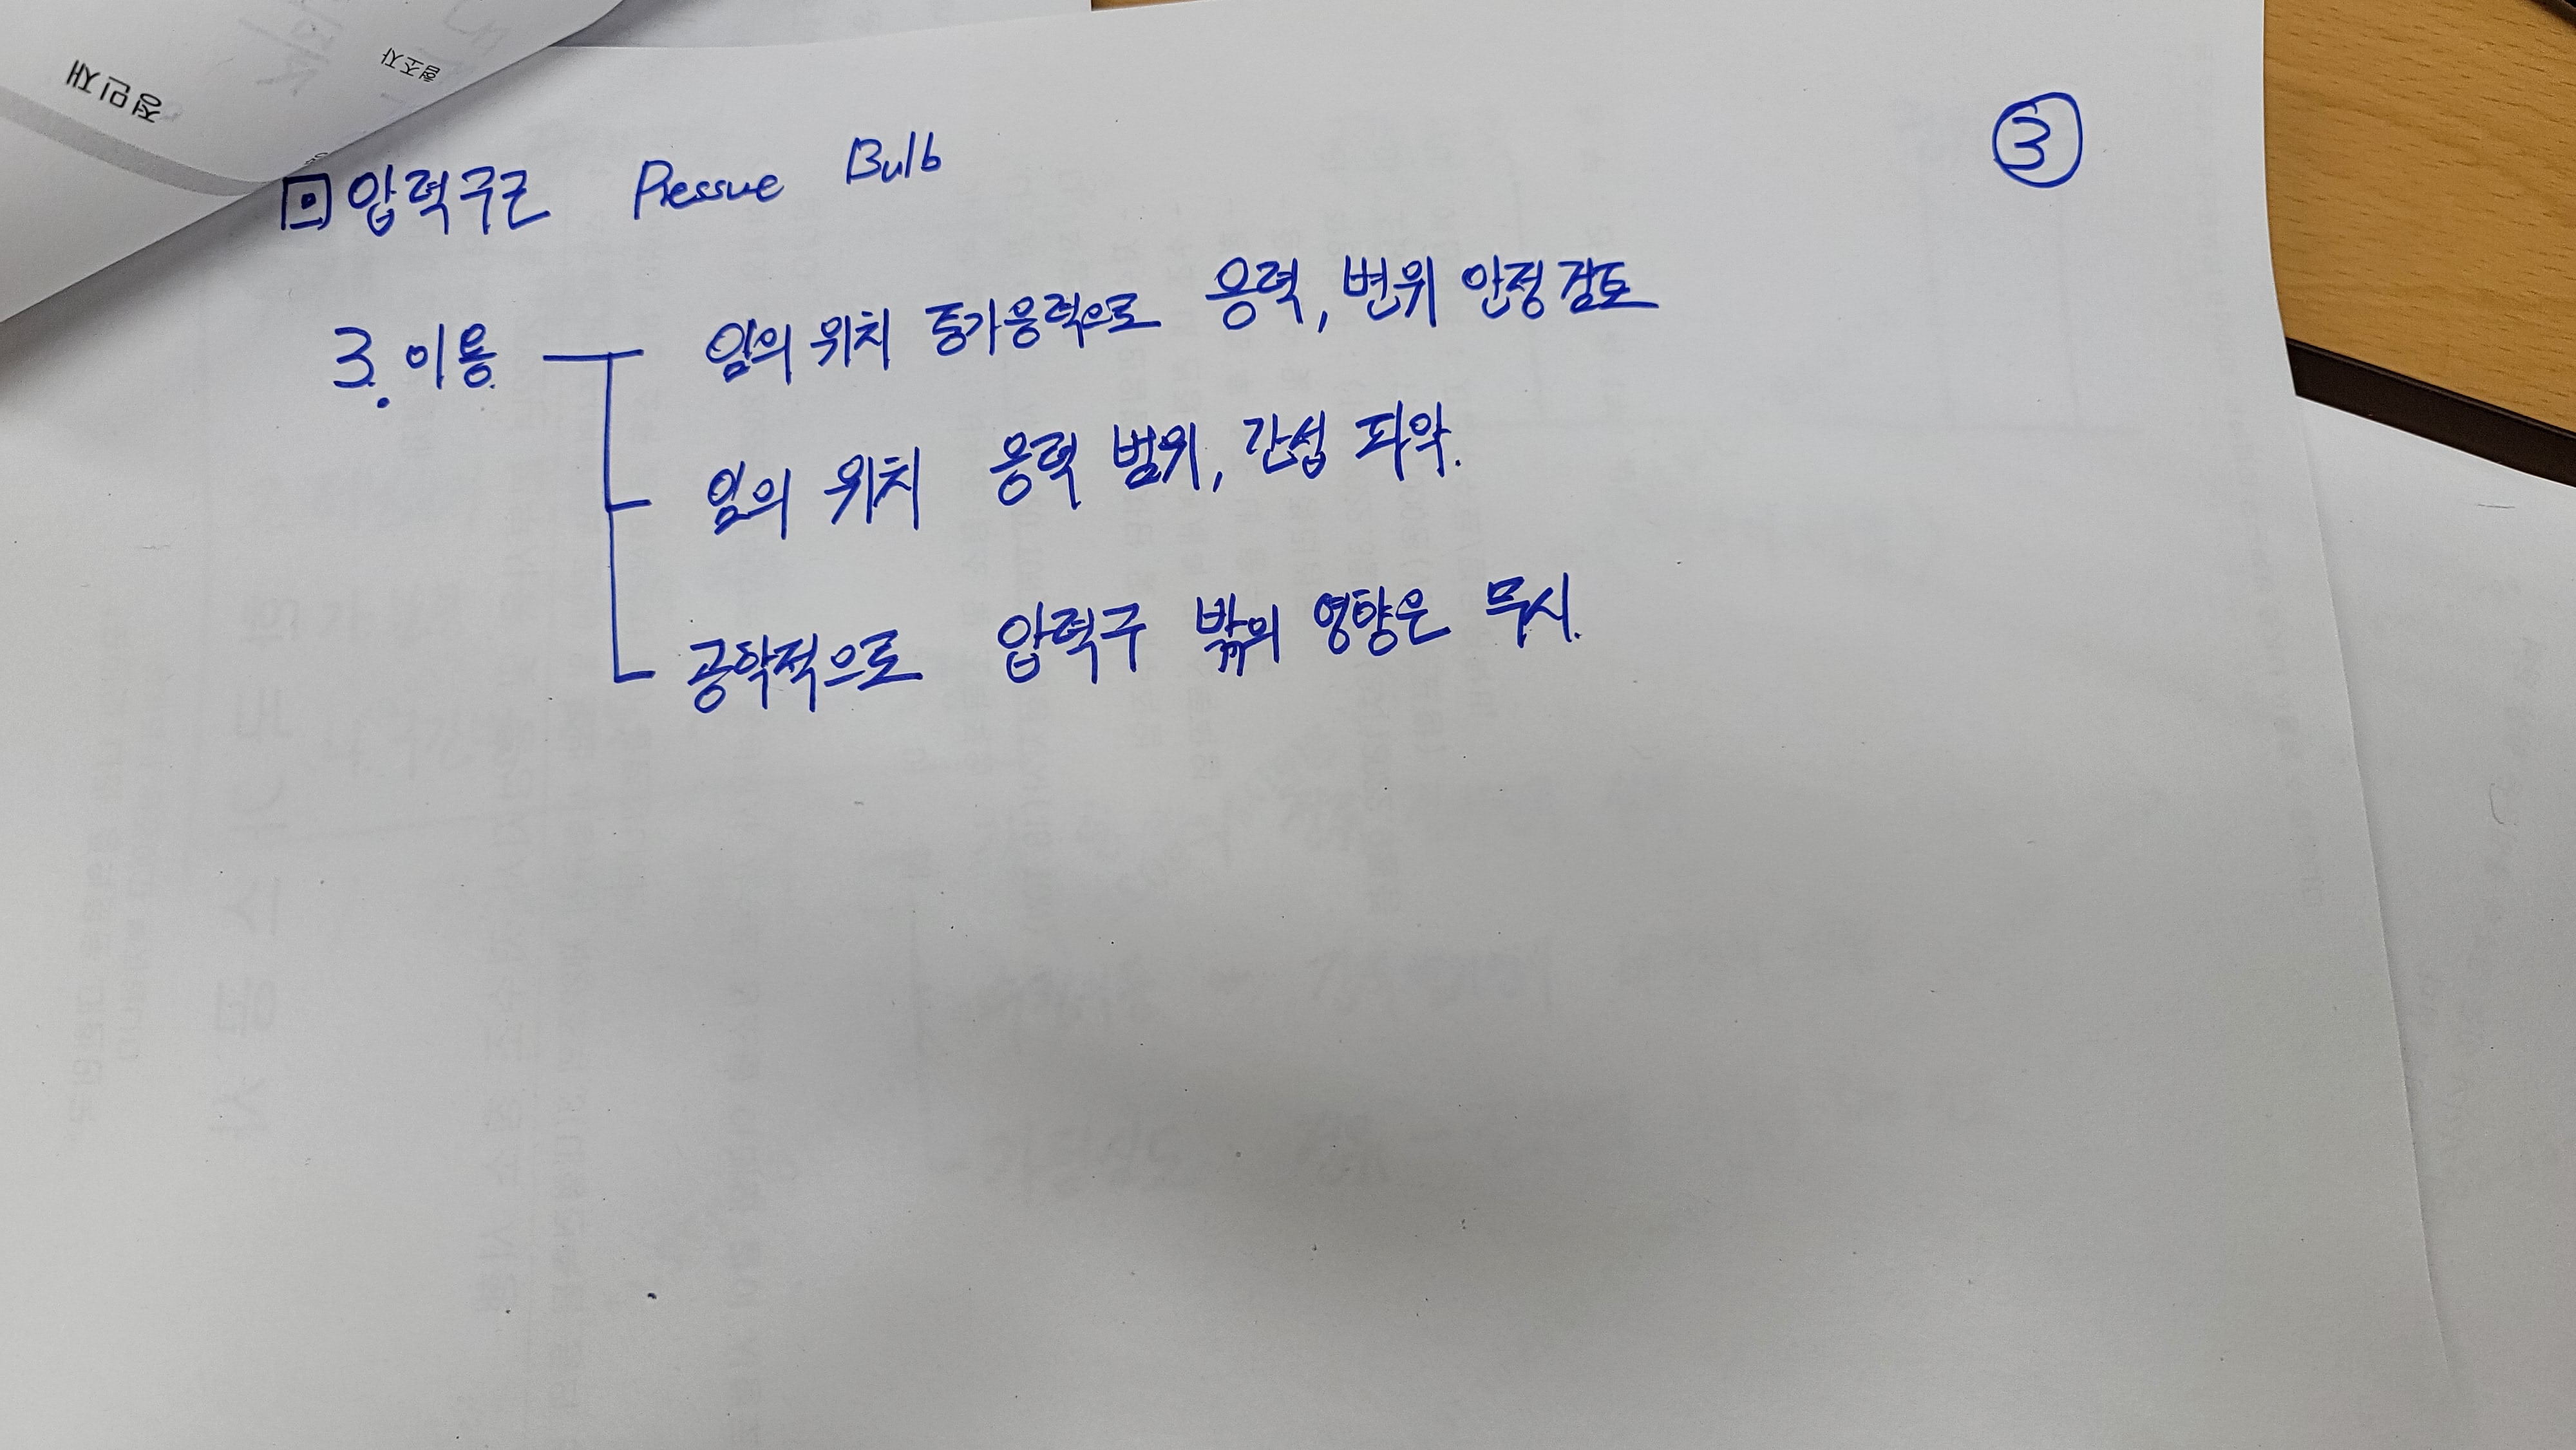 정민재
협조자
③
▣ 압력구근 Pressue Bulb
3. 이용 임의 위치 증가응력으로 응력, 변위 안정검토
임의 위치 응력 범위, 간섭 파악.
공학적으로 압력구 밖의 영향은 무시.